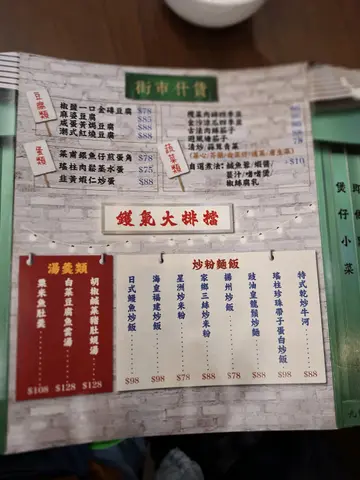 街市仟貨
豆腐類
椒鹽一口金磚豆腐 $78
麻婆豆腐 $85
咸蛋黃焗豆腐 $88
潮式紅燒豆腐 $88
蛋類
菜甫銀魚仔煎蛋角 $78
瑤柱肉鬆水蛋 $75
韭黃蝦仁炒蛋 $88
蔬菜類
清炒/蒜茸青菜 78
自選煮法: 鹹魚蓉/蝦醬 +$10
薑汁/啫啫煲
椒絲腐乳
鑊氣大排檔
湯羹類
胡椒鹹菜豬肚蜆湯 $128
白菜豆腐魚雲湯 $128
粟米魚肚羹 $108
炒粉麵飯
特式乾炒牛河 $88
瑤柱珍珠帶子蛋白炒飯 $98
豉油皇鴛鴦炒麵 $88
揚州炒飯 $78
家鄉三絲炒米粉 $88
星洲炒米粉 $78
海皇福建炒飯 $98
日式鰻魚炒飯 $98
煲仔小菜